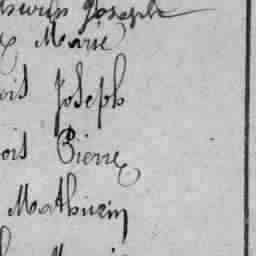 Joseph
Marie
ois Joseph
ois Pierre
Mathurin